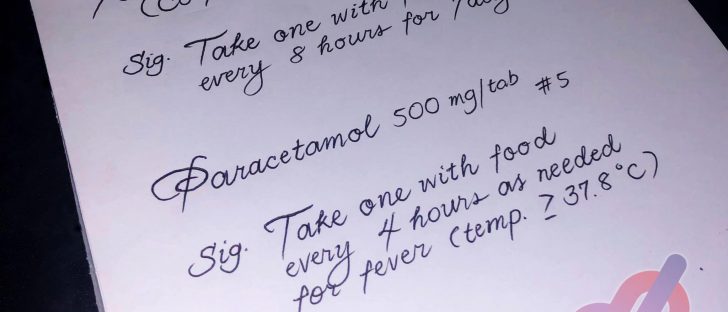 Sig. Take one with
every 8 hours for 7
Paracetamol 500 mg/tab #5
Sig. Take one with food
every 4 hours as needed
for fever (temp. ≥ 37.8°C)